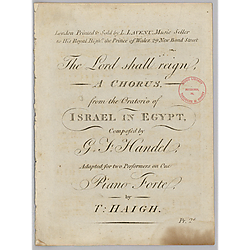 London Printed & Sold by L. LAVENU, Music Seller
to His Royal Highss the Prince of Wales 29 New Bond Street
The Lord shall reign,
A CHORUS,
from the Oratorio of
ISRAEL IN EGYPT,
Composed by
G. F. Handel,
Adapted for two Performers on One
Piano Forte,
by
T: HAIGH.
Pr.